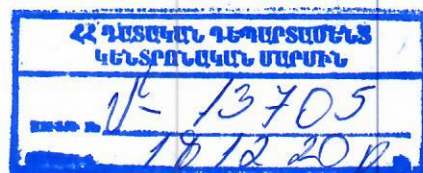 ՀՀ ԴԱՏԱԿԱՆ ԴԵՊԱՐՏԱՄԵՆՏ
ԿԵՆՏՐՈՆԱԿԱՆ ՄԱՐՄԻՆ
13705
18 12 20